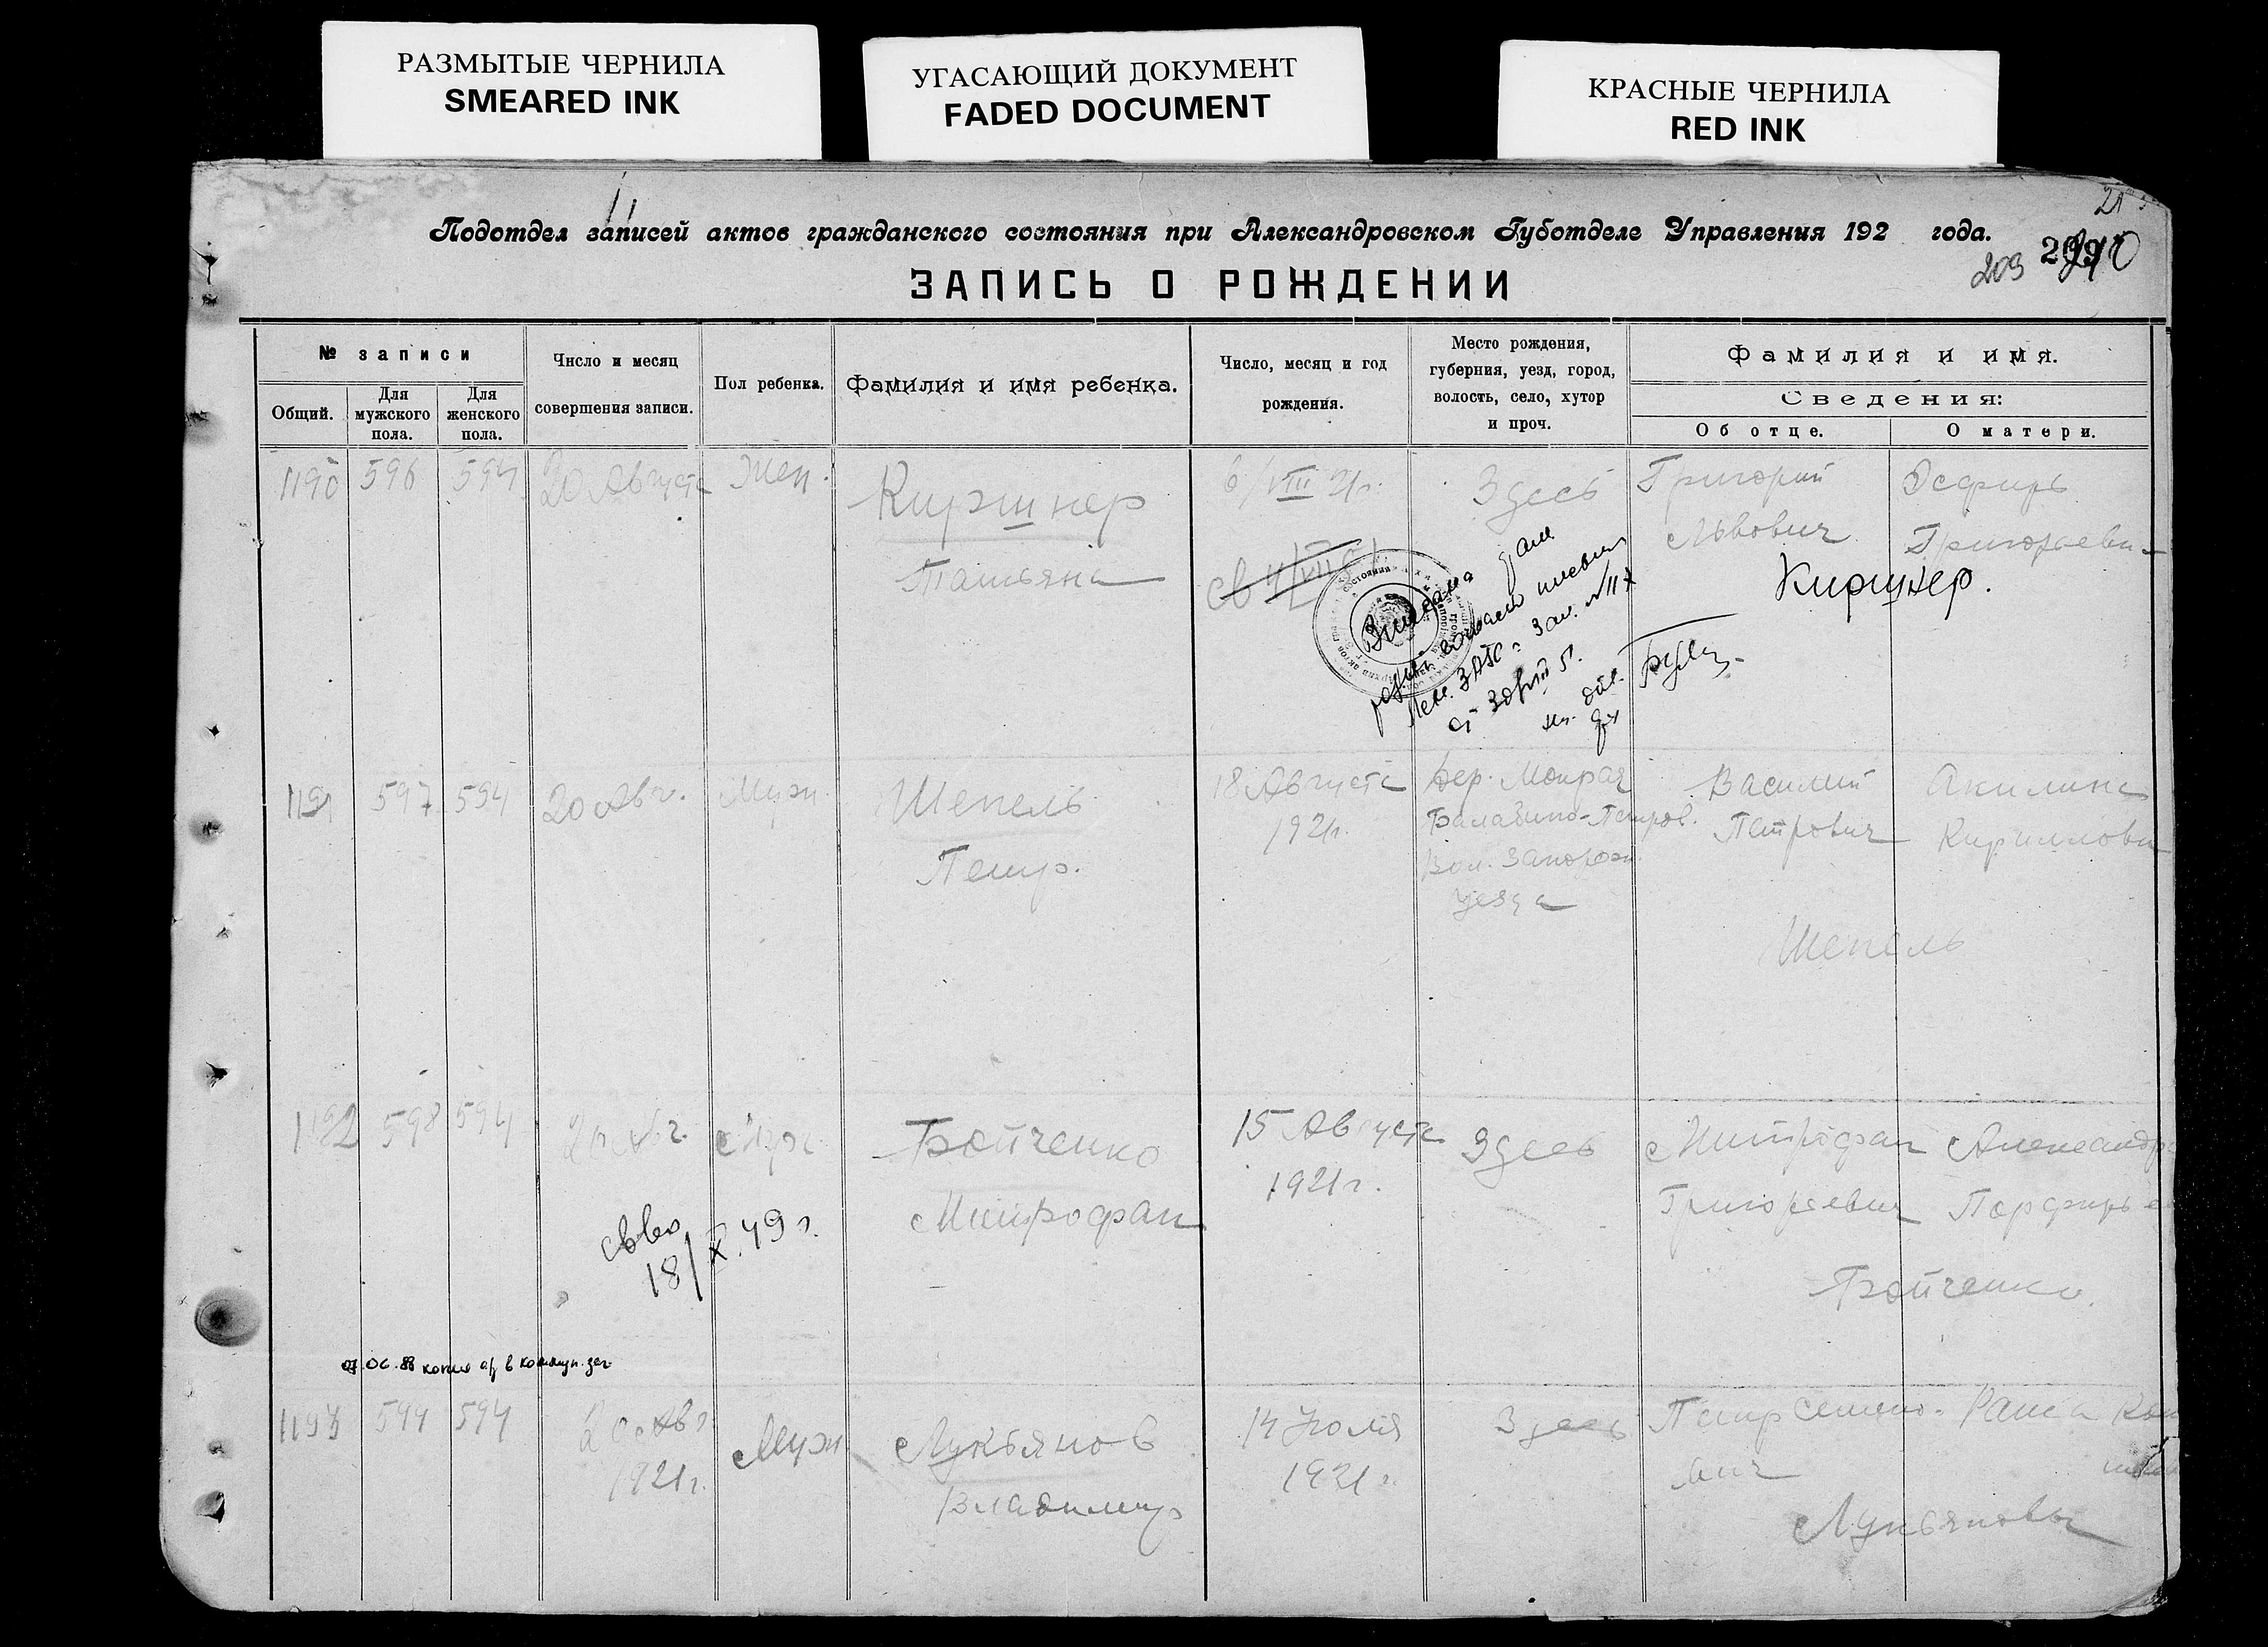 РАЗМЫТЫЕ ЧЕРНИЛА
SMEARED INK
УГАСАЮЩИЙ ДОКУМЕНТ
FADED DOCUMENT
КРАСНЫЕ ЧЕРНИЛА
RED INK
Подотдел записей актов гражданского состояния при Александровском Губотделе Управления 192 года.
209
ЗАПИСЬ О РОЖДЕНИИ
№ записи
Общий.
Для мужского пола.
Для женского пола.
Число и месяц совершения записи.
Пол ребенка.
Фамилия и имя ребенка.
Число, месяц и год рождения.
Место рождения, губерния, уезд, город, волость, село, хутор и проч.
Фамилия и имя.
Сведения:
Об отце.
О матери.
1190 596 594 20 Августа Жен.
Киршнер
Татьяна
6/VIII 21г.
Здесь
Григорий
Львович
Эсфирь
Григорьевн
Киршнер.
1191 597 594 20 Авг. Муж.
Шепель
Петр.
18 Августа
1921г.
дер. Мокрая
Балабино-Петров.
Вол. Запорож.
уезда
Василий
Петрович
Акилина
Кирилловн
Шепель
1192 598 594 20 Авг. Муж
Бойченко
Митрофан
15 Августа
1921г.
Здесь
Митрофан
Григорьевич
Александр
Порфирье
Бойченко.
18/X.49г.
1193 599 594 20 Авг.
1921г.
Муж
Лукьянов
Владимир
14 Июля
1921г.
Здесь
Петр Семено-
вич
Раиса
Лукьяновы